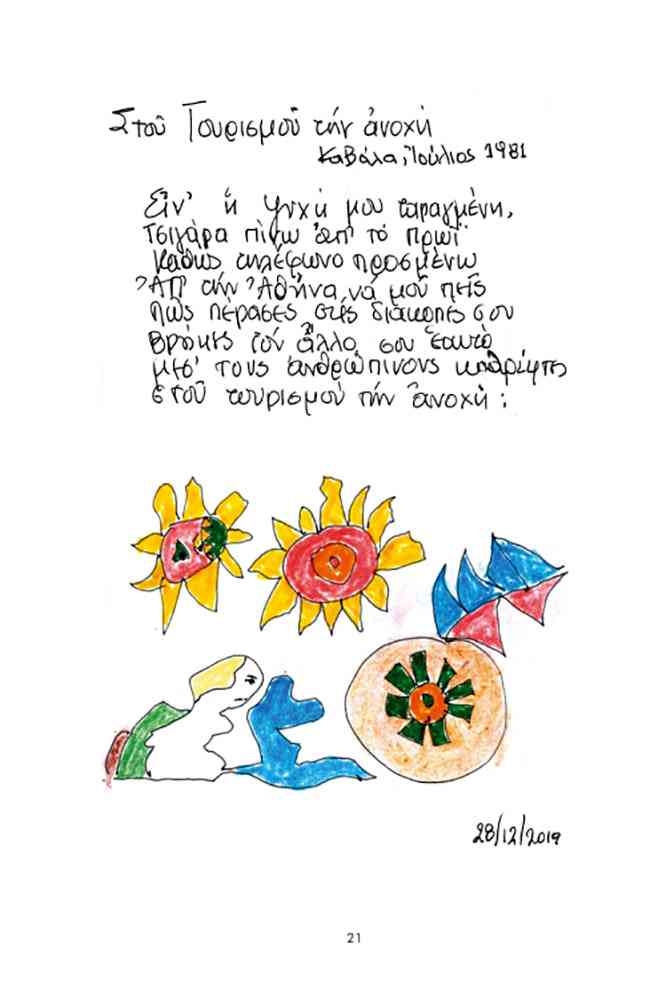 Στοῦ Τουρισμοῦ τήν ἀνοχή
Καβάλα, Ἰούλιος 1981
Εἶν' ἡ ψυχή μου ταραγμένη,
Τσιγάρα πίνω ἀπ' τό πρωΐ
Καθώς τηλέφωνο προσμένω
Ἀπ' τήν Ἀθήνα νά μοῦ πεῖς
πώς πέρασες στίς διακοπές σου
βρῆκες τόν ἄλλο σου ἑαυτό
μέσ' τους ἀνθρώπινους καθρέφτες
στοῦ τουρισμοῦ τήν ἀνοχή:
28/12/2019
21